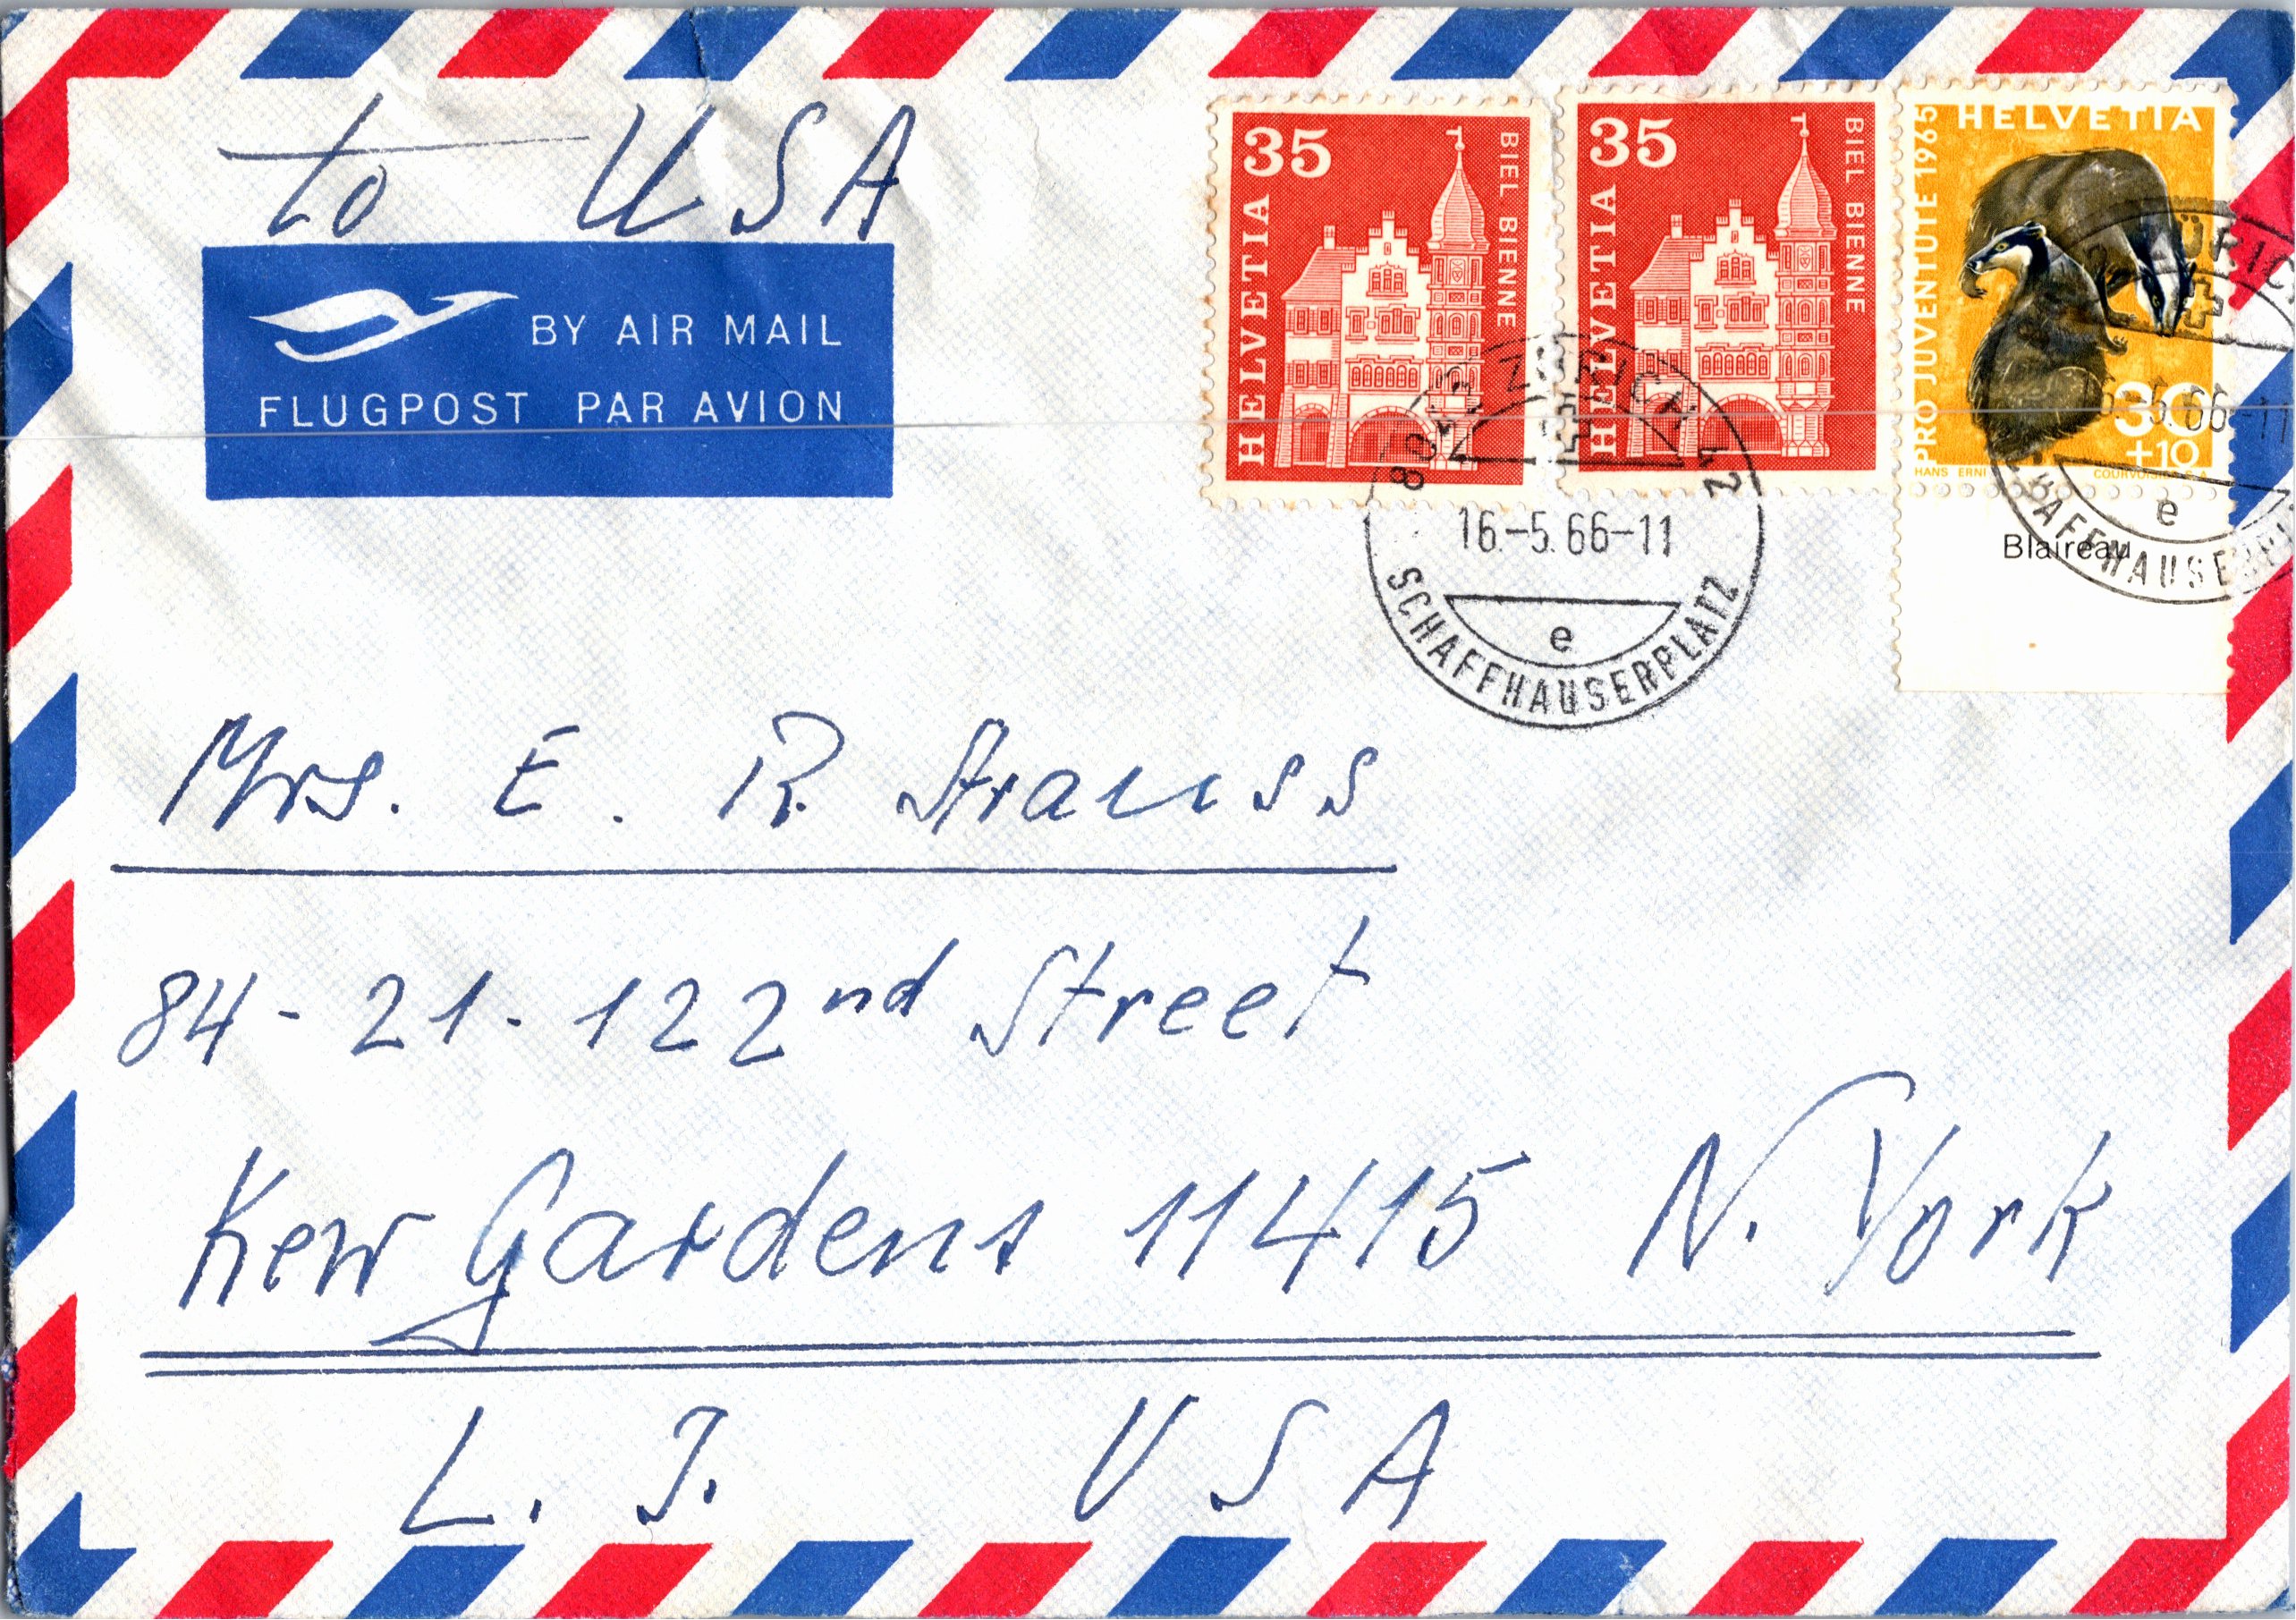 to USA
BY AIR MAIL
FLUGPOST PAR AVION
35
HELVETIA
BIEL BIENNE
35
HELVETIA
BIEL BIENNE
HELVETIA
PRO JUVENTUTE 1965
30
+10
HANS ERNI
COURVOISIER S.A.
Blaireau
8042 ZÜRICH 42
16.-5.66-11
e
SCHAFFHAUSERPLATZ
ZÜRICH
5.66-11
e
SCHAFFHAUSERPL
Mrs. E. R. Strauss
84-21-122nd Street
Kew Gardens 11415 N. York
L. I. USA